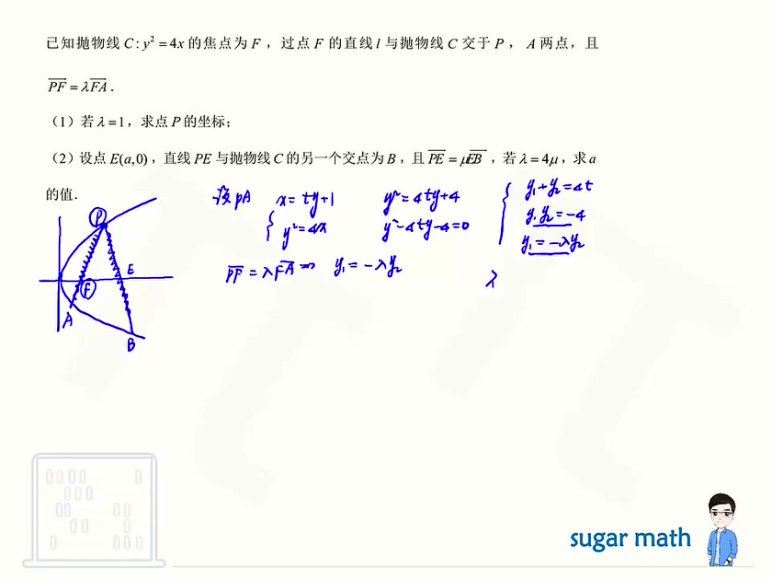 已知抛物线 C: y² = 4x 的焦点为 F ，过点 F 的直线 l 与抛物线 C 交于 P ， A 两点，且
PF = λFA .
（1）若 λ =1，求点 P 的坐标；
（2）设点 E(a,0)，直线 PE 与抛物线 C 的另一个交点为 B ，且 PE = μEB ，若 λ = 4μ，求 a
的值.
设PA x = ty+1 y²=4ty+4
{ y²=4x y²-4ty-4=0
PF = λFA ⇒ y₁ = -λy₂
{ y₁+y₂=4t
y₁y₂=-4
y₁=-λy₂
λ
P
E
F
A
B
sugar math